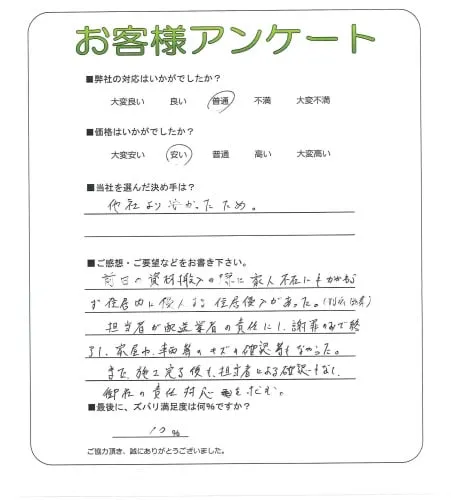 お客様アンケート
■弊社の対応はいかがでしたか？
大変良い 良い 普通 不満 大変不満
■価格はいかがでしたか？
大変安い 安い 普通 高い 大変高い
■当社を選んだ決め手は？
他社より安かったため。
■ご感想・ご要望などをお書き下さい。
前日の資材搬入の際に家人不在にもかかわらず
住居内に侵入する住居侵入があった。
担当者が配送業者の責任にし、謝罪のみで終
了し、家屋や、車両等のキズの確認等もなかった。
また、施工完了後も、担当者による確認もなし、
御社の責任対応を求む。
■最後に、ズバリ満足度は何％ですか？
10％
ご協力頂き、誠にありがとうございました。